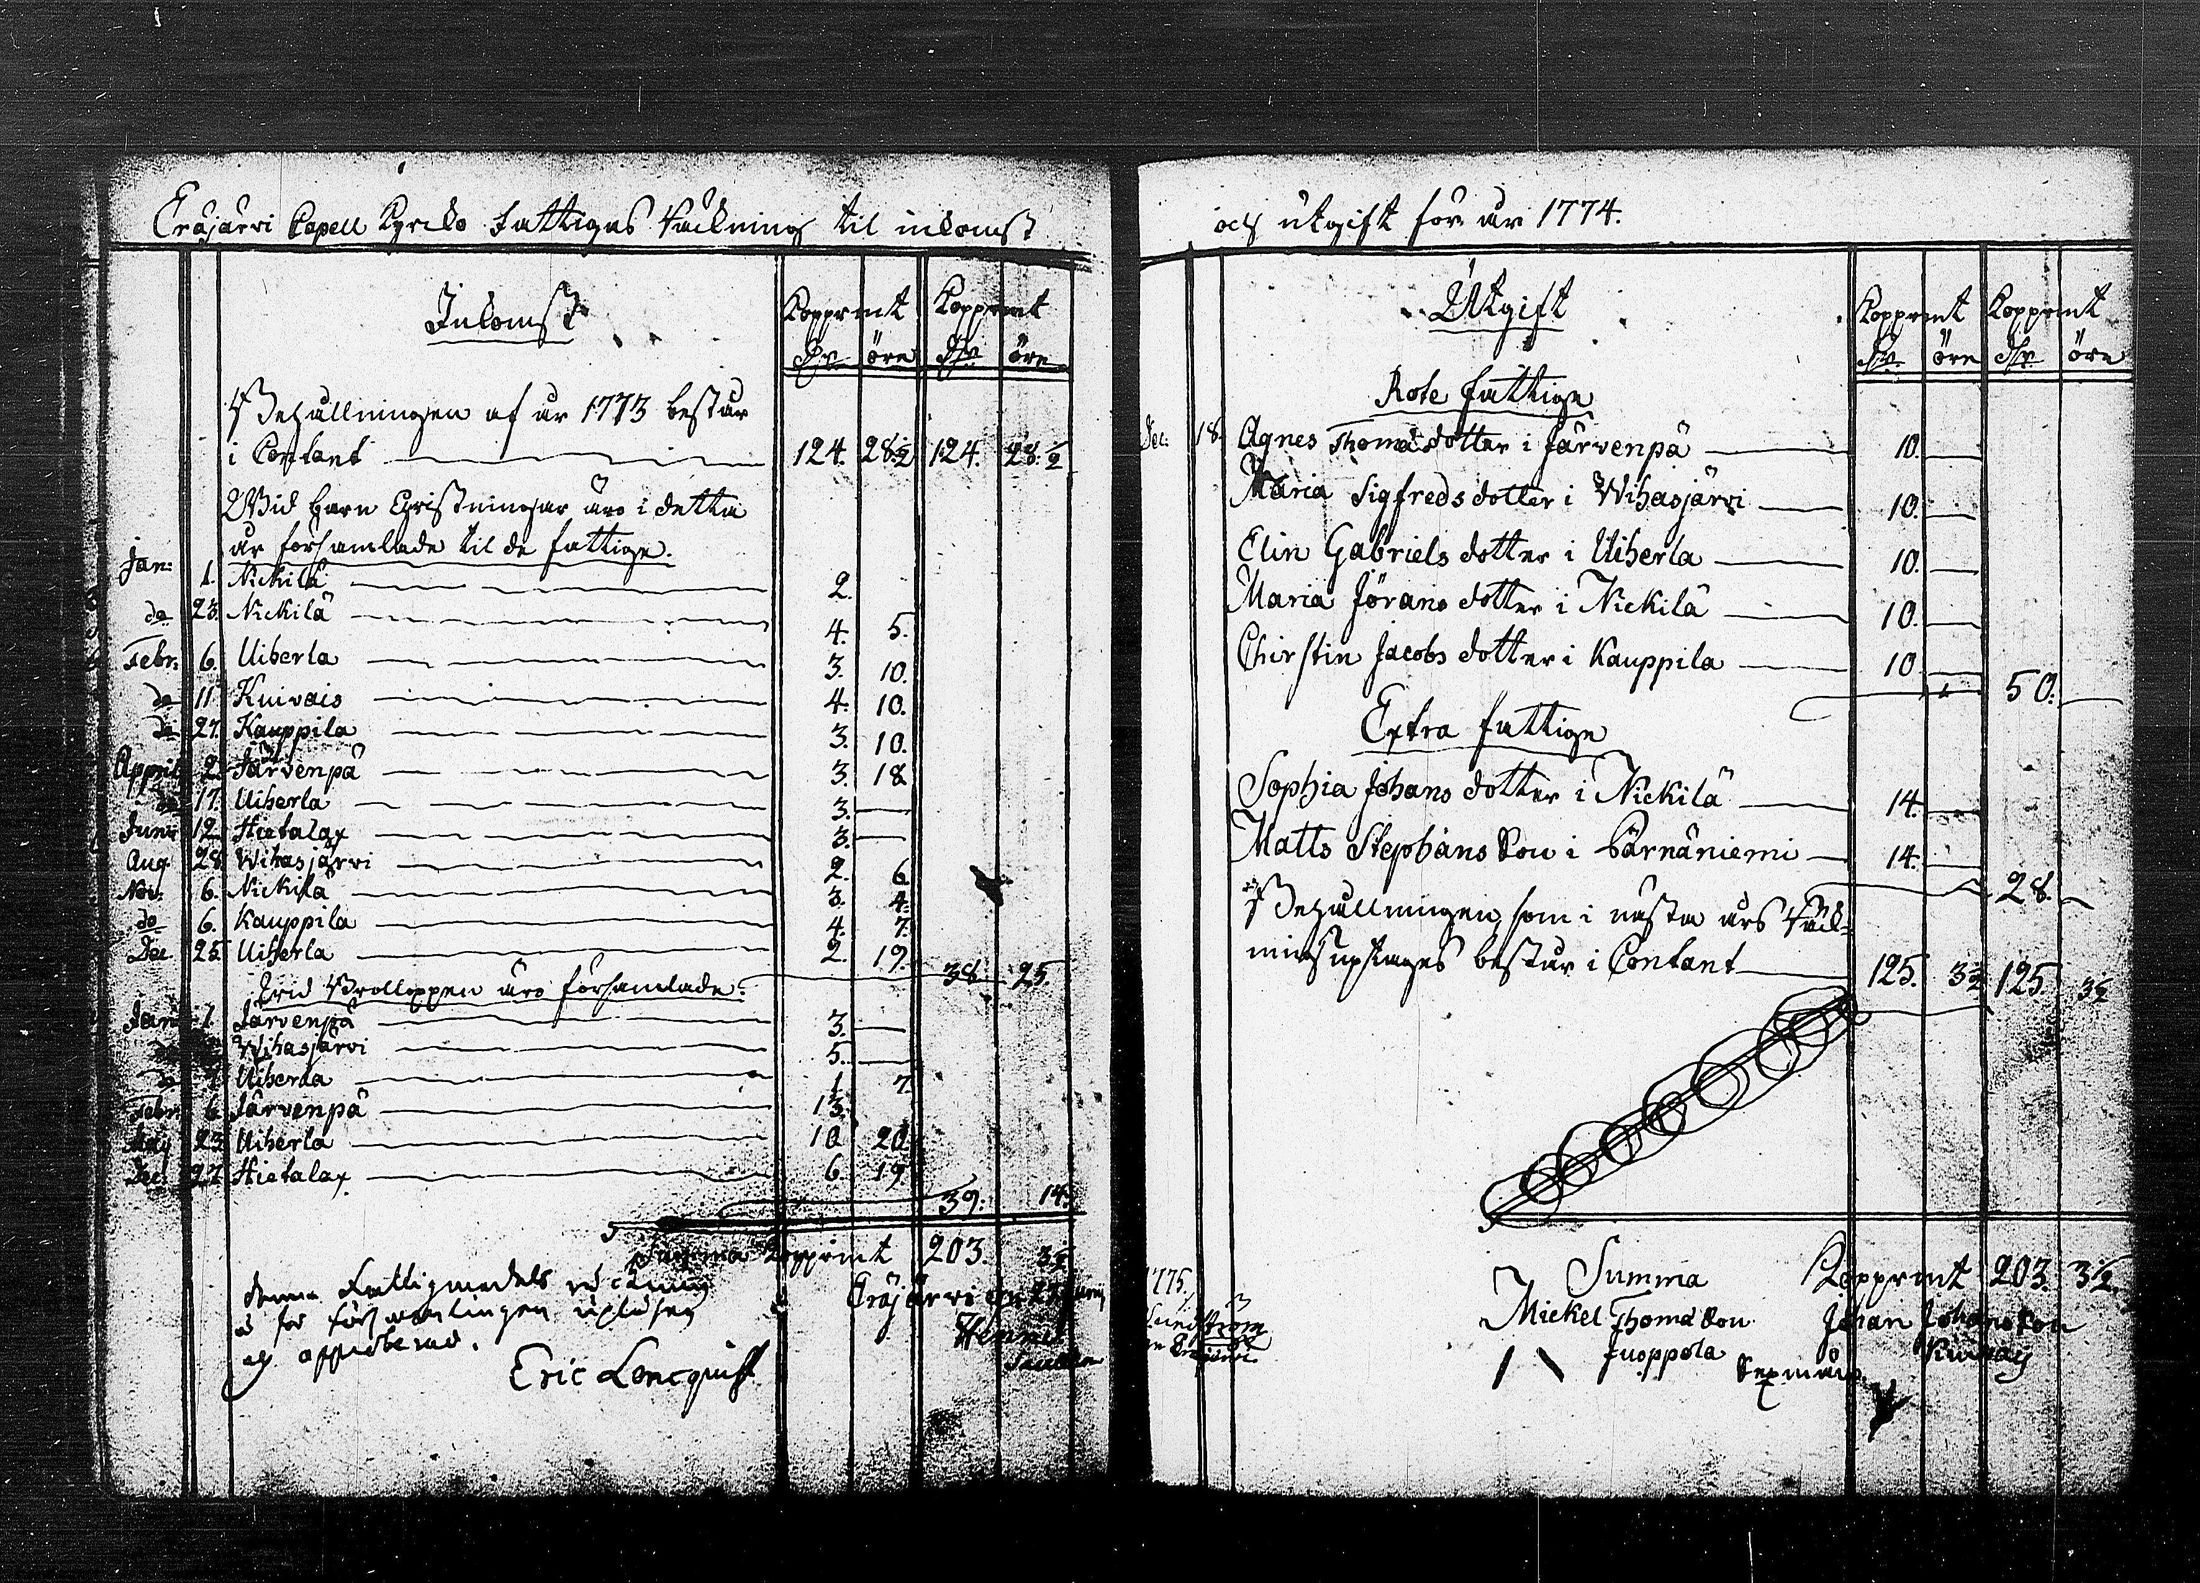 Eräjärvi Capell Kyrcko Fattigas Räckning til inkomst
Inkomst
Kopprmt Kopprmt
Dlr öre Dlr öre
Behållningen af år 1773 består
i Contant 124. 28 1/2 124. 28 1/2
Wid barn Christningar äro i detta
år församlade til de fattige.
Jan: 1. Nickilä 2.
do 23. Nickilä 4. 5.
Febr: 6. Uiherla 3. 10.
do 11. Kuivais 4. 10.
do 27. Kauppila 3. 10.
Appril 2. Järvenpä 3. 18
do 17. Uiherla 3.
Juni 12. Hietalax 3.
Aug 28. Wihasjärvi 2. 6
Nov: 6. Nickilä 3. 4.
do 6. Kauppila 4. 7.
Dec 25. Uiherla 2. 19.
Wid Brölloppen äro församlade. 38 25.
Janu 1. Järvenpä 3.
do Wihasjärvi 5.
do Uiherla 1. 7.
Febr: 6 Järvenpä 13.
23. Uiherla 10 20.
Dec: 27. Hietalax 6. 19.
39. 14.
Summa Kopprmt 203. 3 1/2
denna Fattigmedels räckning
är för församlingen upläsen
och approberad.
Eric Lencquist
Eräjärvi den
och utgift för år 1774.
Utgift
Kopprmt Kopprmt
Dlr öre Dlr öre
Rote fattige
Dec: 18. Agnes Thomæ dotter i Järvenpä 10.
Maria Sigfreds dotter i Wihasjärvi 10.
Elin Gabriels dotter i Uiherla 10.
Maria Jörans dotter i Nickilä 10.
Chirstin Jacobs dotter i Kauppila 10
50.
Extra fattige
Sophia Johans dotter i Nickilä 14.
Matts Stephans Son i Pärnäniemi 14.
28.
Behållningen, som i nästa års Räck-
ning uptages består i Contant 125. 3 1/2 125. 3 1/2
Summa Kopprmt 203. 3 1/2
1775.
Mickel Thomæ Son Johan Johans Son
Juoppola
Sexmän.